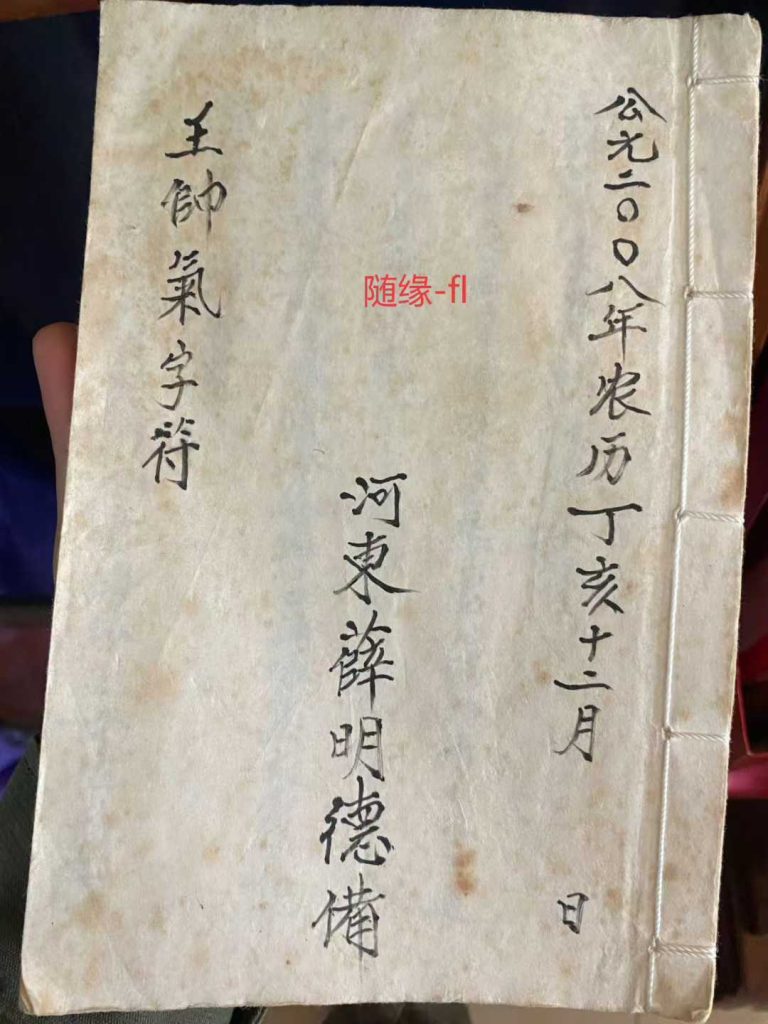 公元二〇〇八年农历丁亥十二月　日
河東薛明德備
王帥氣字符
随缘-fl